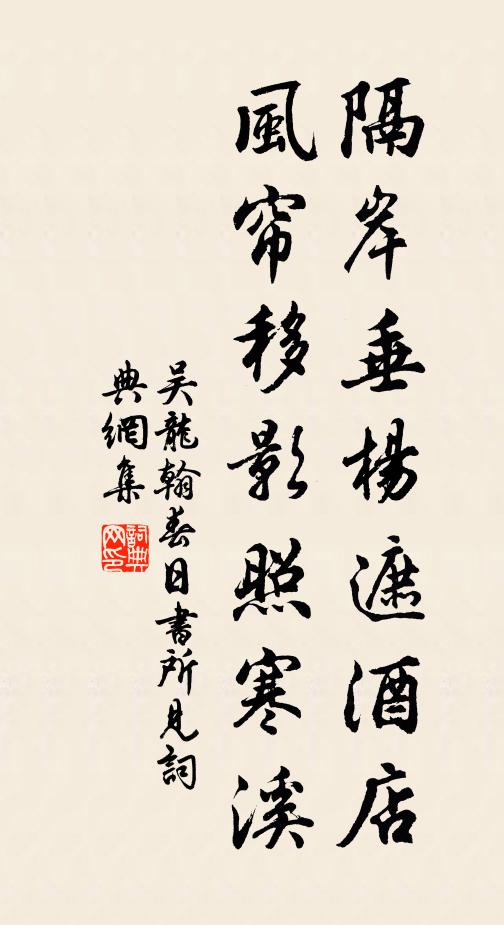 隔岸垂楊遮酒店
風帘移影照寒溪
吳龍翰春日書所見詞
典網集
詞典網印